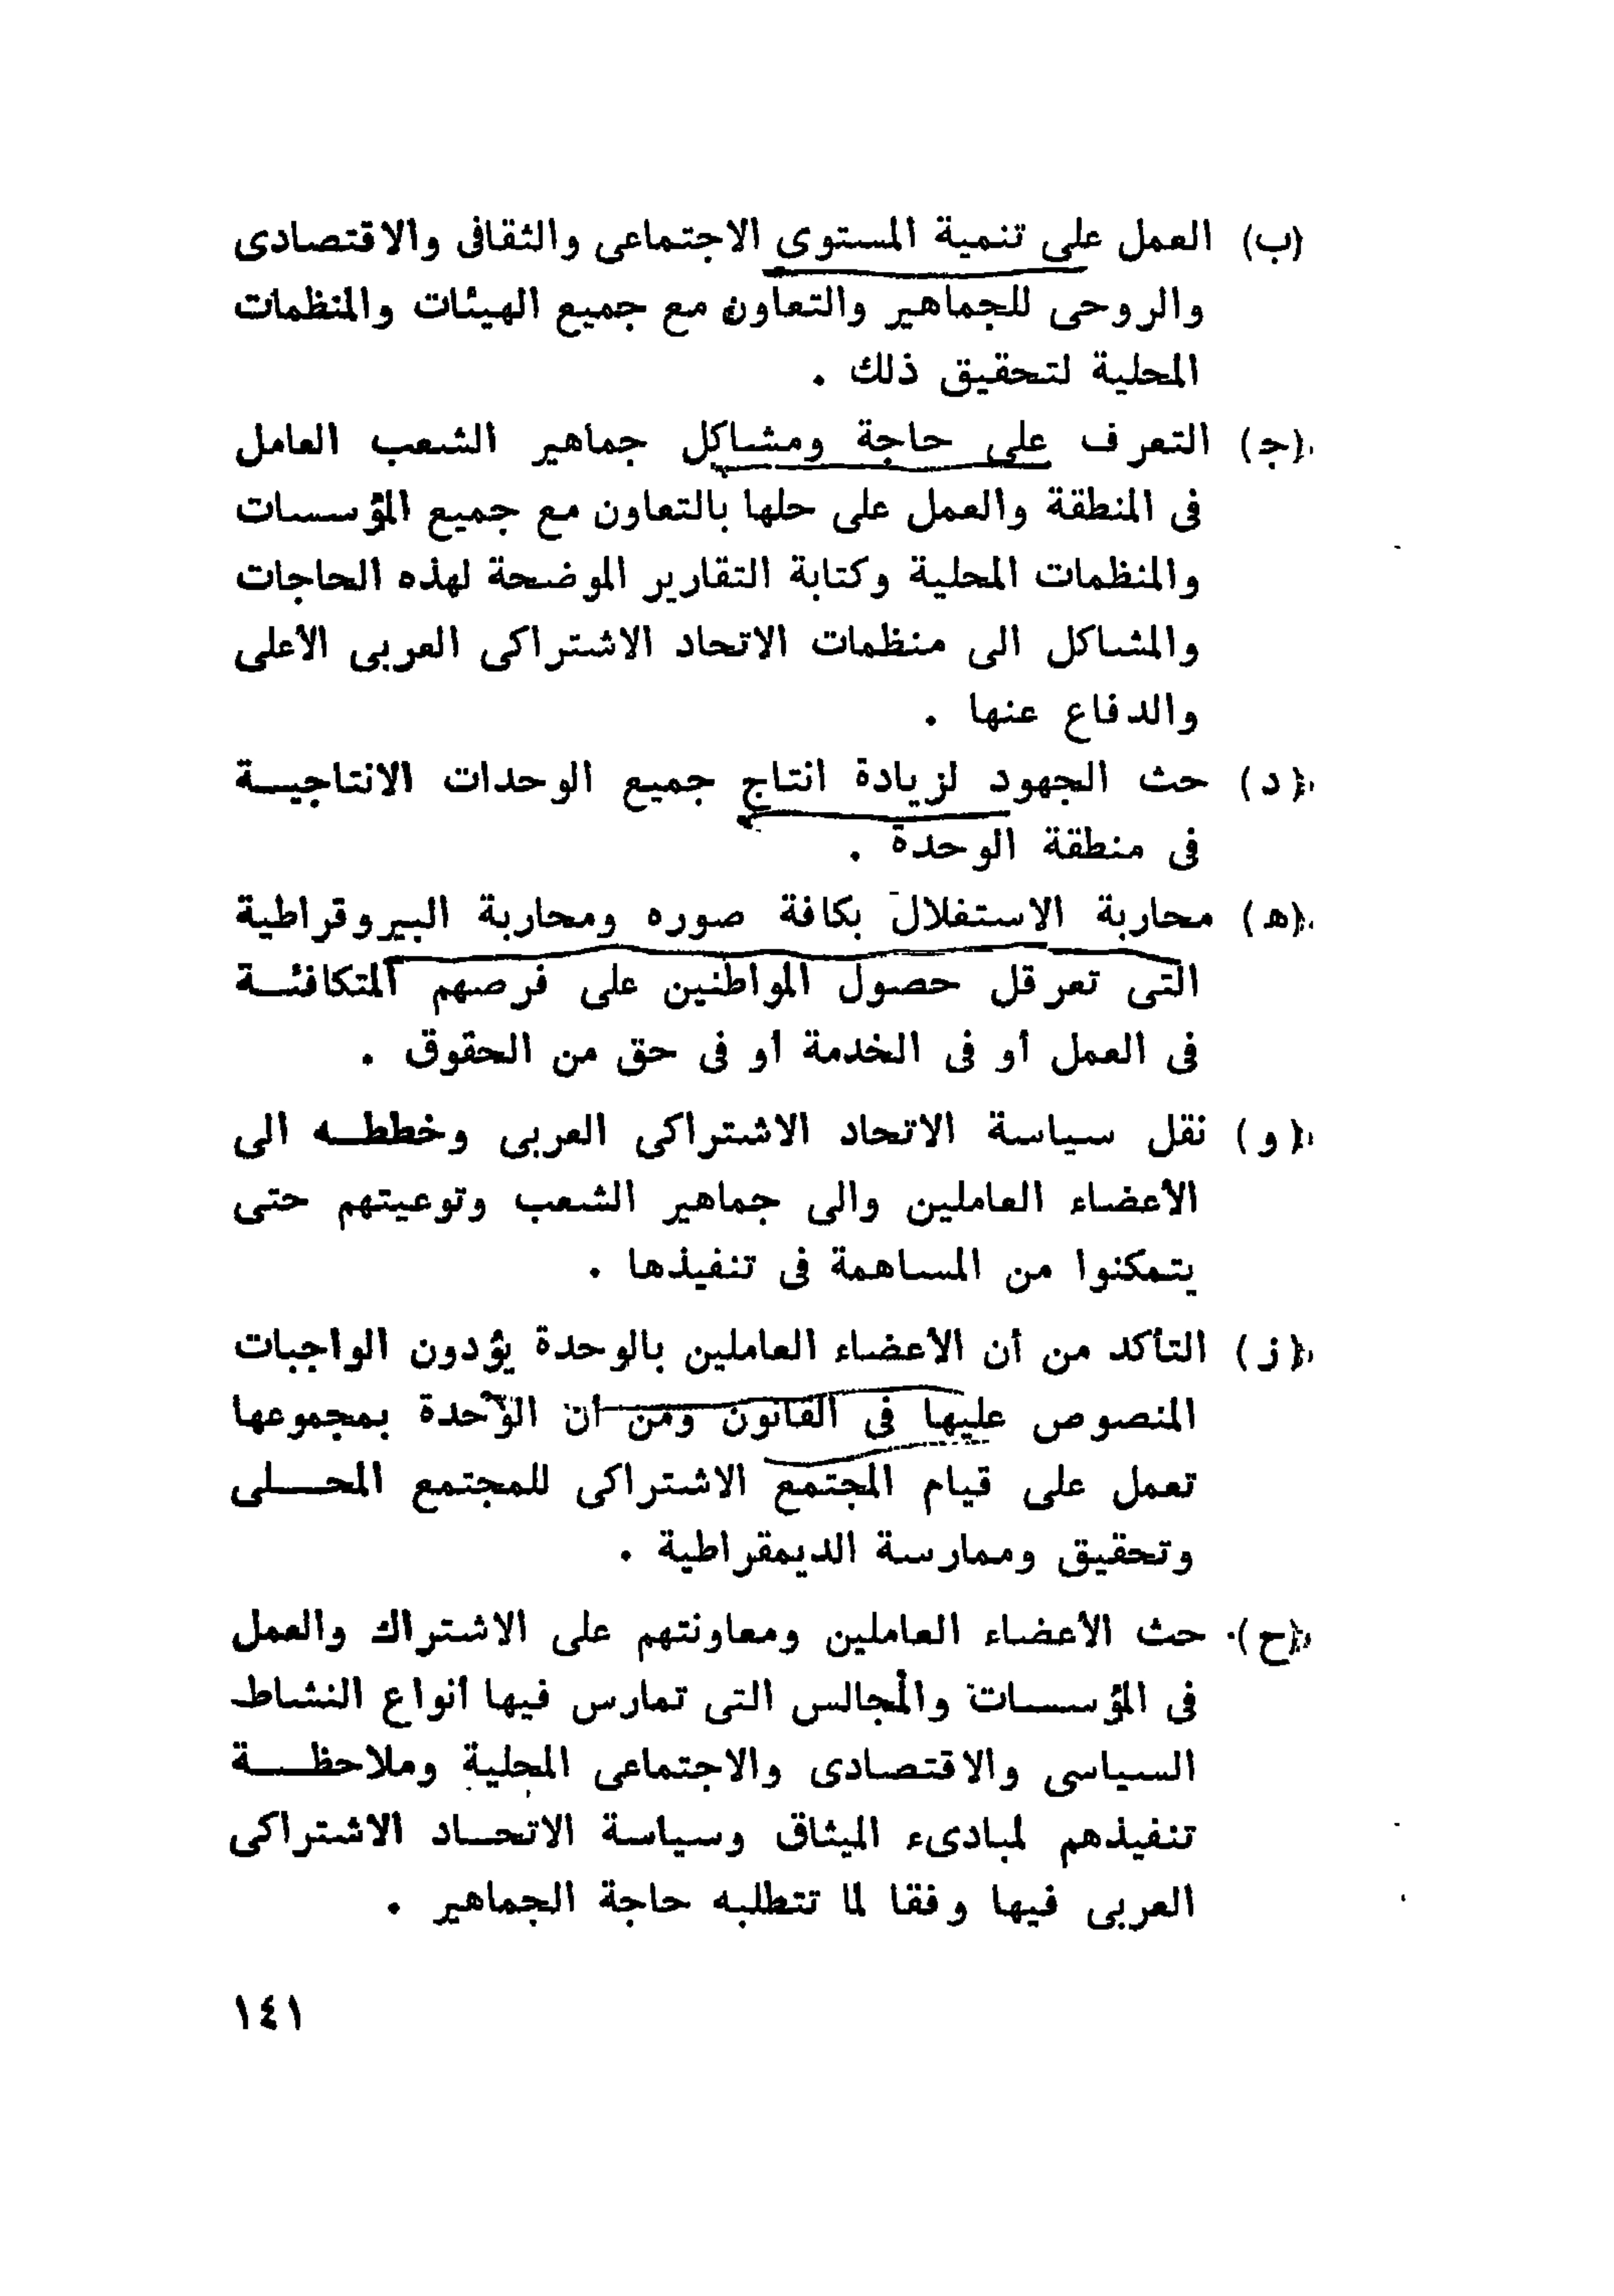 (ب) العمل على تنمية المستوى الاجتماعى والثقافى والاقتصادى
والروحى للجماهير والتعاون مع جميع الهيئات والمنظمات
المحلية لتحقيق ذلك .
(ج) التعرف على حاجة ومشاكل جماهير الشعب العامل
فى المنطقة والعمل على حلها بالتعاون مع جميع المؤسسات
والمنظمات المحلية وكتابة التقارير الموضحة لهذه الحاجات
والمشاكل الى منظمات الاتحاد الاشتراكى العربى الأعلى
والدفاع عنها .
(د) حث الجهود لزيادة انتاج جميع الوحدات الانتاجيـة
فى منطقة الوحدة .
(هـ) محاربة الاستغلال بكافة صوره ومحاربة البيروقراطية
التى تعرقل حصول المواطنين على فرصهم المتكافئـة
فى العمل أو فى الخدمة أو فى حق من الحقوق .
(و) نقل سياسة الاتحاد الاشتراكى العربى وخططـه الى
الأعضاء العاملين والى جماهير الشعب وتوعيتهم حتى
يتمكنوا من المساهمة فى تنفيذها .
(ز) التأكد من أن الأعضاء العاملين بالوحدة يؤدون الواجبات
المنصوص عليها فى القانون ومن أن الوحدة بمجموعها
تعمل على قيام المجتمع الاشتراكى للمجتمع المحـلى
وتحقيق وممارسة الديمقراطية .
(ح) حث الأعضاء العاملين ومعاونتهم على الاشتراك والعمل
فى المؤسسات والمجالس التى تمارس فيها أنواع النشاط
السياسى والاقتصادى والاجتماعى المحلية وملاحظـة
تنفيذهم لمبادىء الميثاق وسياسة الاتحـاد الاشتراكى
العربى فيها وفقا لما تتطلبه حاجة الجماهير .
١٤١